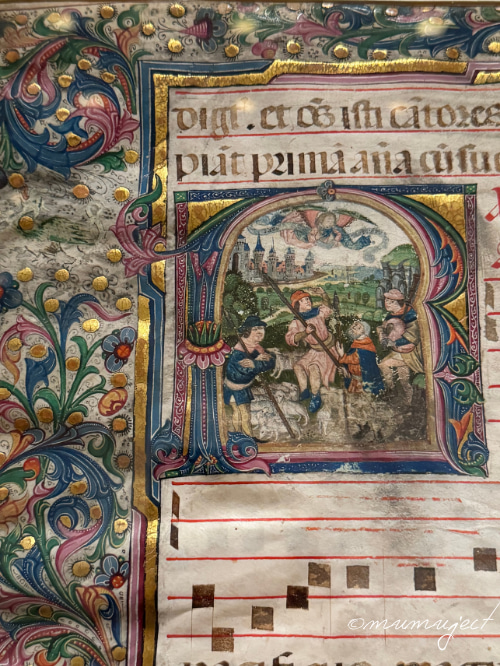 digi . et oēs isti cātores
piāt primā añā cū su
©mumuject